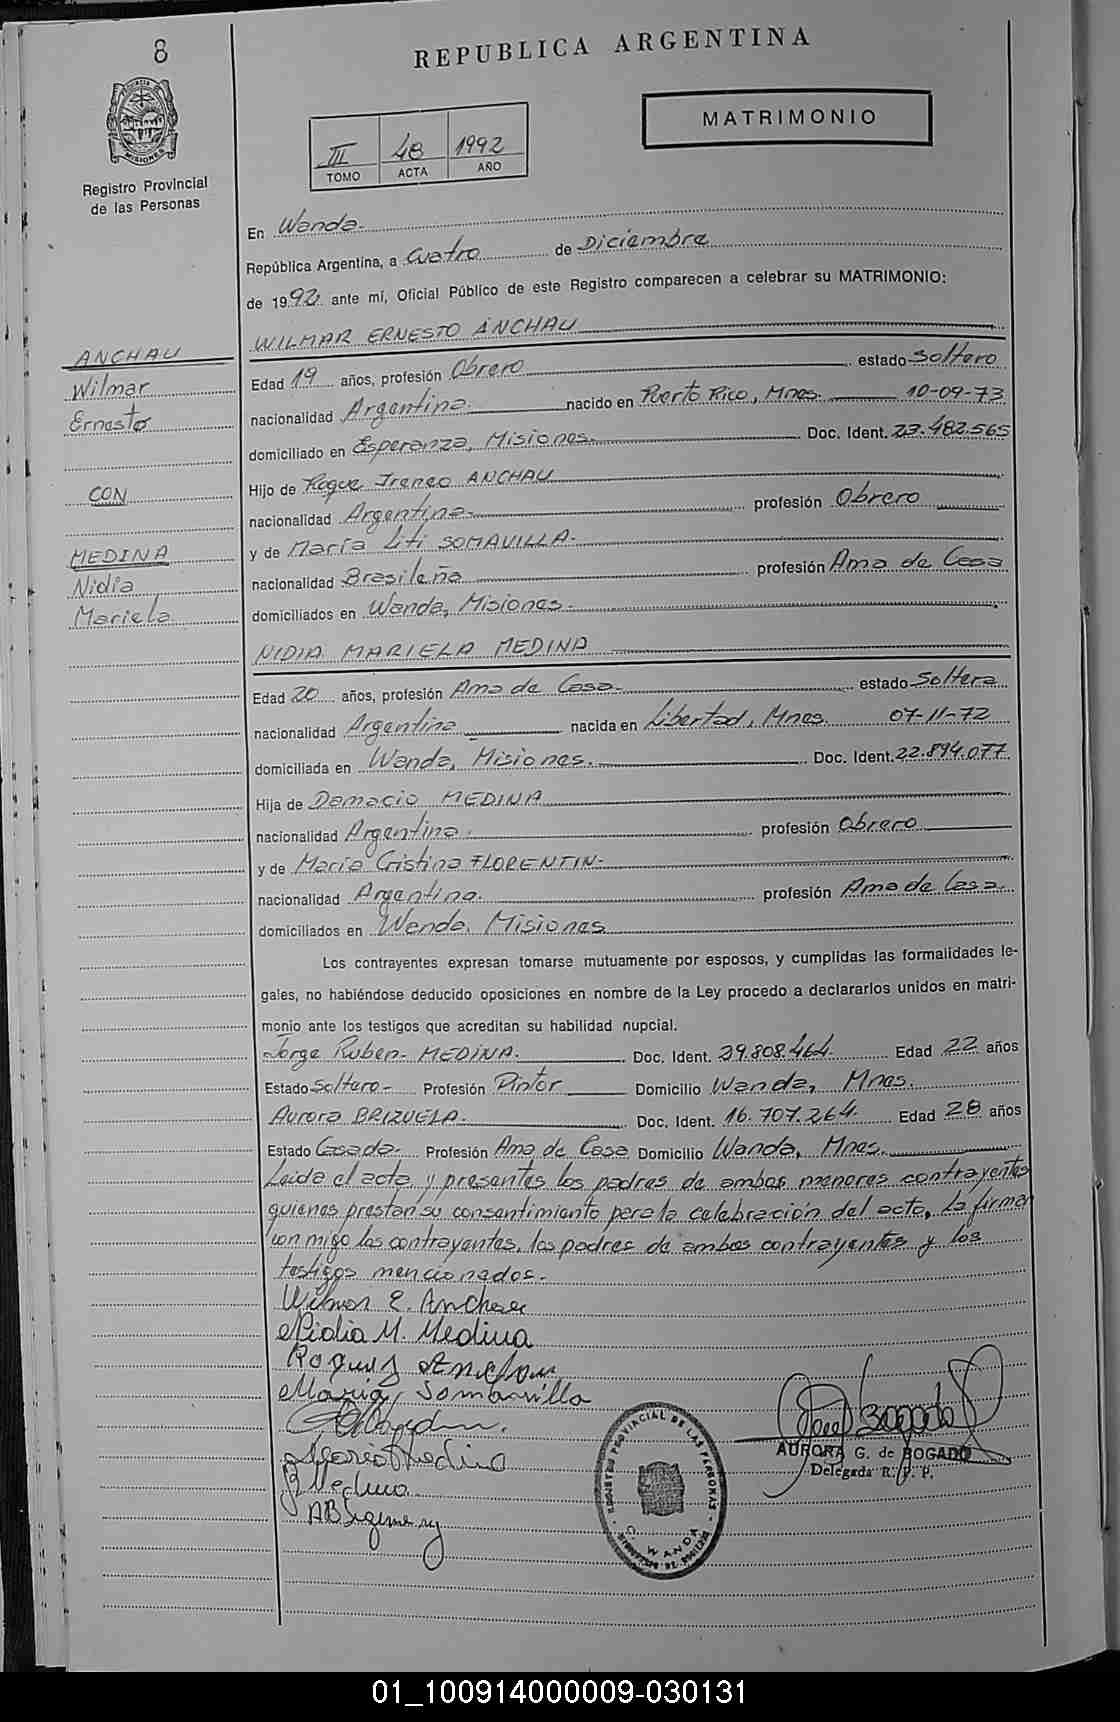 8
REPUBLICA ARGENTINA
MATRIMONIO
III 48 1992
TOMO ACTA AÑO
MISIONES
Registro Provincial
de las Personas
En Wanda.
República Argentina, a cuatro de Diciembre
de 1992 ante mí, Oficial Público de este Registro comparecen a celebrar su MATRIMONIO:
WILMAR ERNESTO ANCHAU
ANCHAU
Wilmar
Ernesto
CON
MEDINA
Nidia
Mariela
Edad 19 años, profesión Obrero estado Soltero
nacionalidad Argentina. nacido en Puerto Rico, Mnes. 10-09-73
domiciliado en Esperanza, Misiones. Doc. Ident. 23.482.565
Hijo de Roque Ireneo ANCHAU
nacionalidad Argentina. profesión Obrero
y de María Liti SOMAVILLA.
nacionalidad Brasileña profesión Ama de Casa
domiciliados en Wanda, Misiones.
NIDIA MARIELA MEDINA
Edad 20 años, profesión Ama de Casa. estado Soltera
nacionalidad Argentina nacida en Libertad, Mnes. 07-11-72
domiciliada en Wanda, Misiones. Doc. Ident. 22.894.077
Hija de Damacio MEDINA
nacionalidad Argentina. profesión Obrero
y de María Cristina FLORENTIN-
nacionalidad Argentina. profesión Ama de Casa.
domiciliados en Wanda, Misiones
Los contrayentes expresan tomarse mutuamente por esposos, y cumplidas las formalidades le-
gales, no habiéndose deducido oposiciones en nombre de la Ley procedo a declararlos unidos en matri-
monio ante los testigos que acreditan su habilidad nupcial.
Jorge Ruben- MEDINA. Doc. Ident. 29.808.464. Edad 22 años
Estado Soltero- Profesión Pintor Domicilio Wanda, Mnes.
Aurora BRIZUELA. Doc. Ident. 16.707.264. Edad 28 años
Estado Casada. Profesión Ama de Casa Domicilio Wanda, Mnes.
Leida el acta y presentes los padres de ambos menores contrayentes
quienes prestan su consentimiento para la celebración del acto, la firman
con migo los contrayentes, los padres de ambos contrayentes y los
testigos mencionados.
Wilmar E. Anchau
Nidia M. Medina
Roque I Anchau
Maria Somavilla
Medina
AURORA G. de BOGADO
Delegada R. P. P.
REGISTRO PROVINCIAL DE LAS PERSONAS
WANDA
01_100914000009-030131